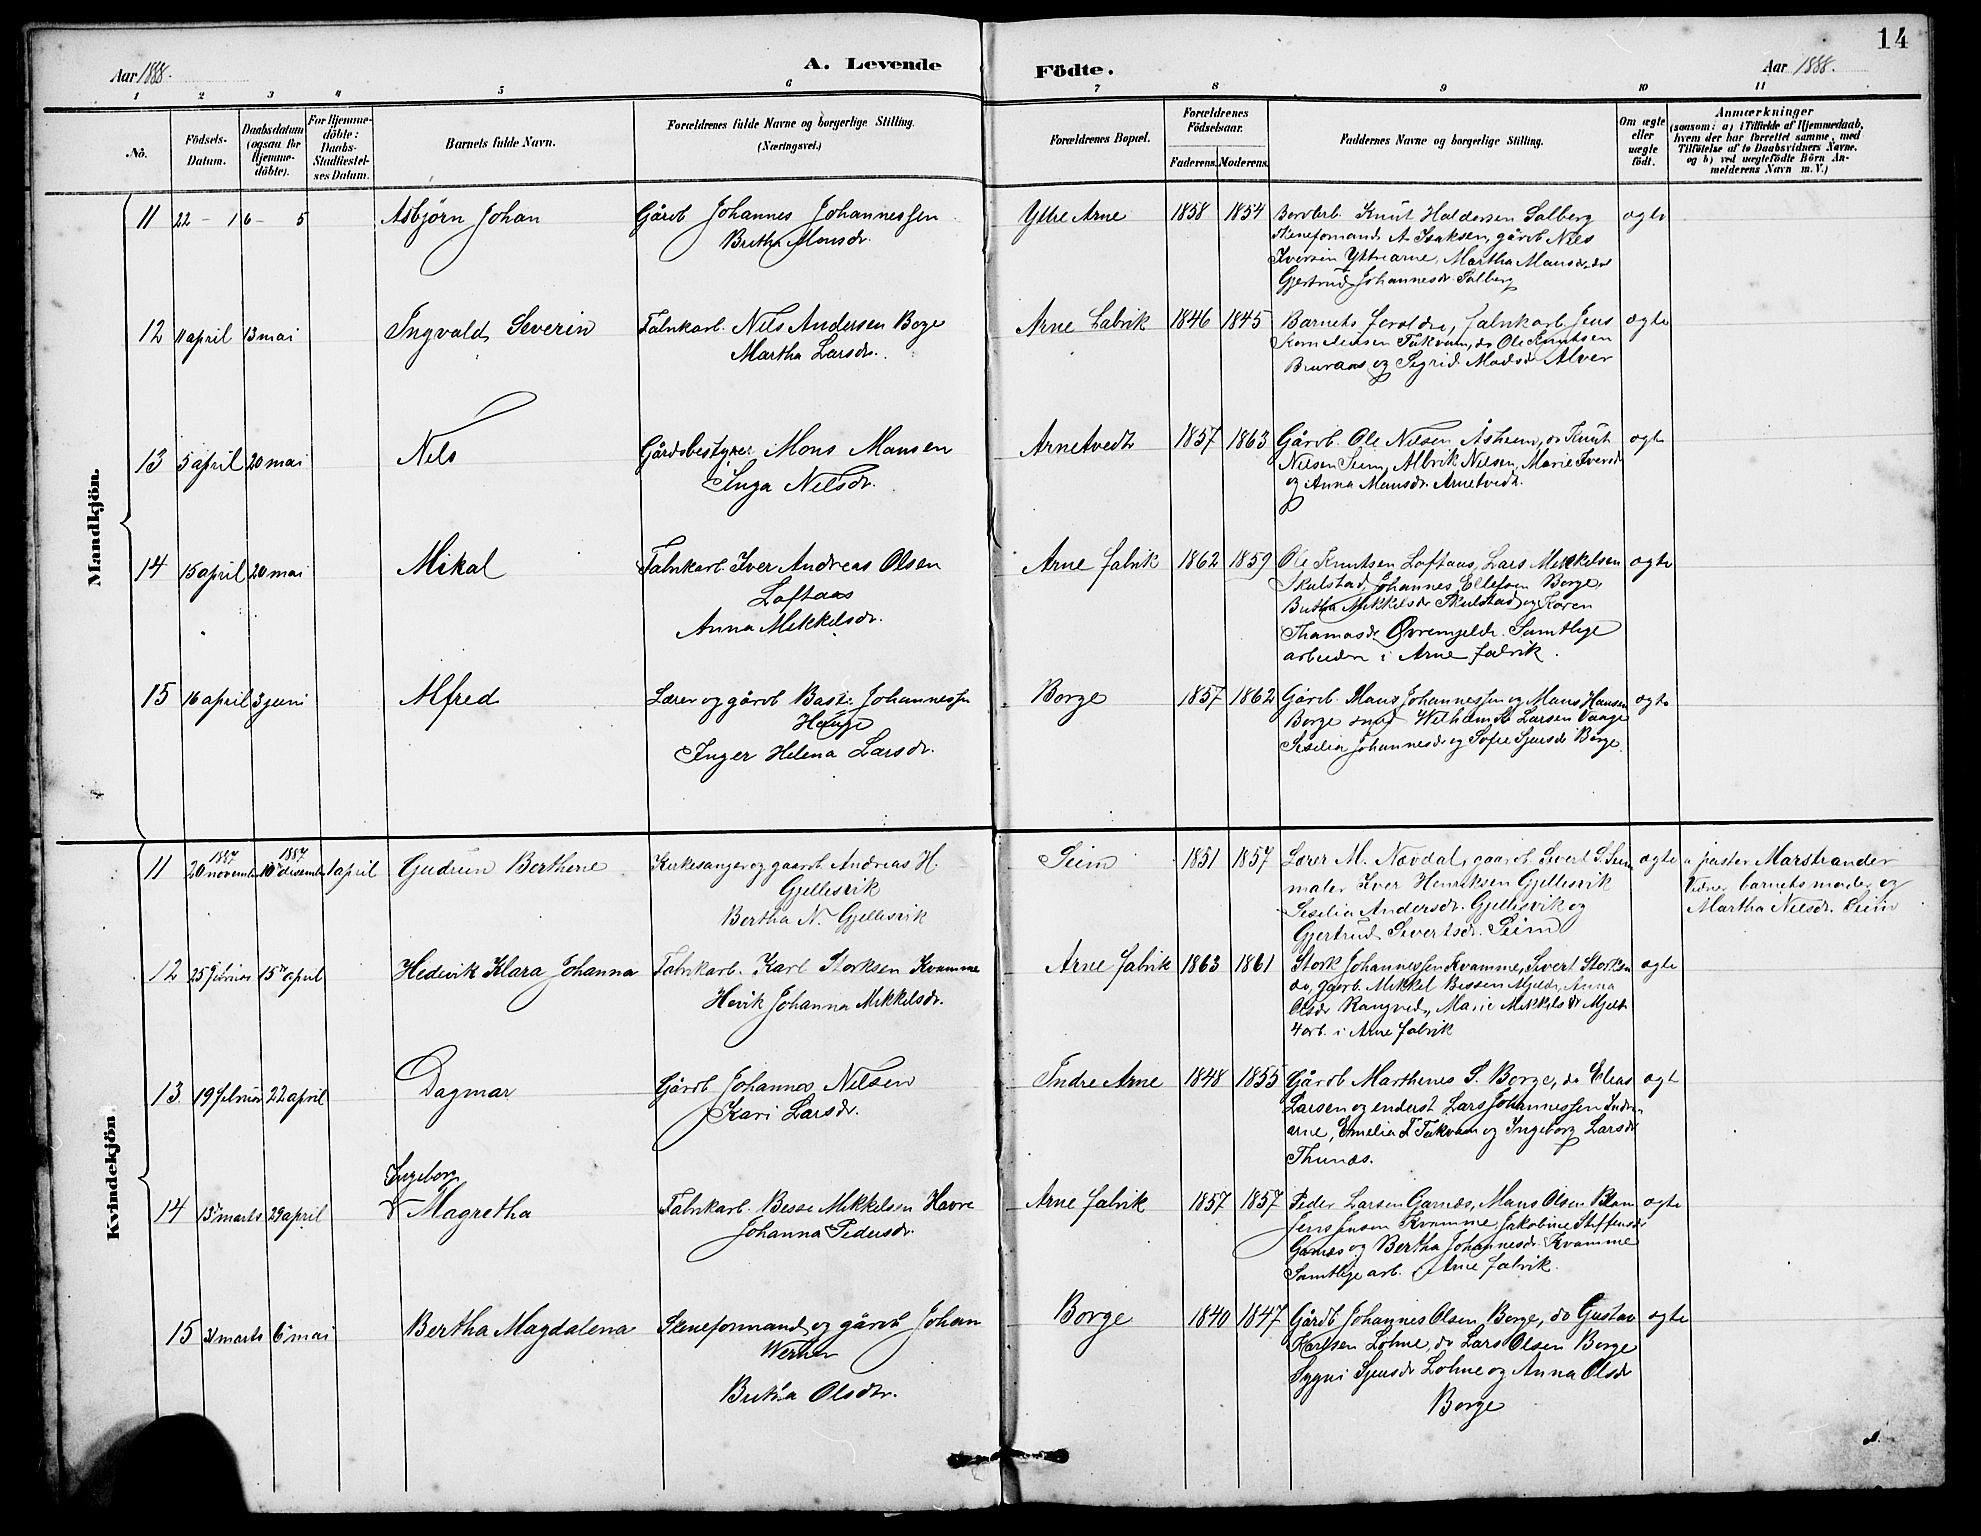 14
Aar 1888.
A. Levende Födte.
Aar 1888.
1 2 3 4 5 6 7 8 9 10 11
No.
Födsels-Datum.
Daabsdatum (ogsaa for Hjemme-döbte).
For Hjemme-döbte: Daabs-Stadfæstel-ses Datum.
Barnets fulde Navn.
Forældrenes fulde Navne og borgerlige Stilling. (Næringsvei.)
Forældrenes Bopæl.
Forældrenes Födselsaar.
Faderens. Moderens.
Faddernes Navne og borgerlige Stilling.
Om ægte eller uægte födt.
Anmærkninger
(saasom: a) i Tilfælde af Hjemmedaab, hvem der har forrettet samme, med Tilföielse af to Daabsvidners Navne. og b) ved uægtefödte Börn Anmelderens Navn m. V.)
Mandkjön.
11 22 - 1 6 - 5 Asbjörn Johan Gårdb Johannes Johannessen Ytre Arne 1858 1854 Knut Haldorsen Solberg ægte
Britha Monsdr. A Isaksen, gårdb Nils
Iversen Ytrearne, Martha Mansdr
Gjertrud Johannesdr Solberg
12 11 april 13 mai Ingvald Severin Fabrikarb. Nils Andersen Borge Arne Fabrik 1846 1845 Barnets foreldre, fabrikarb Jens ægte
Martha Larsdr. Kornelensen Takvam, do Ole Knutsen
og Sigrid Madsdr Alver
13 5 april 20 mai Nils Gårdsbestyrer Mons Monsen Arnetvedt 1857 1863 Gårdb. Ole Nilsen Åsheim, do Knut ægte
Inga Nilsdr. Nilsen Seim, Albrik Nilsen, Marie Iversdr
og Anna Mansdr. Arnetvedt.
14 15 april 20 mai Mikal Fabrikarb. Iver Andreas Olsen Arne fabrik 1862 1859 Ole Knutsen Loftaas, Lars Mikkelsen ægte
Loftaas Skulstad, Johannes Ellefsen Borge,
Anna Mikkelsdr. Britha Mikkelsdr Skulstad og Karen
Thomasdr Øvremjelde. Samtlige
arbeider i Arne fabrik.
15 16 april 3 juni Alfred Lærer og gårdb Basti Johannessen Borge 1857 1862 Gårdb. Hans Johannessen og Mans Hansen ægte
Hauge Borge smed Wilhelm Larsen Vaage
Inger Helena Larsdr. Seselia Johannesdr og Sofie Sjursdr Borge
Kvindekjön.
11 1887 20 november 1887 10 desember 1 april Gudrun Berthine Kirkesanger og gaardb Andreas H. Seim 1851 1857 Lærer M. Nævdal, gaardb Sivert S. Seim ægte a pastor Marstrander
Gjellesvik maler Iver Henriksen Gjellesvik Vidner barnets moder og
Bertha N. Gjellesvik Seselia Andersdr. Gjellesvik og Martha Nilsdr. Seim
Gjertrud Sivertsdr. Seim
12 25 februar 15 april Hedevik Klara Johanna Fabrikarb. Karl Storksen Kvamme Arne fabrik 1863 1861 Stork Johannessen Kvamme, Sivert Storksen ægte
Hevik Johanna Mikkelsdr. do, gaarb. Mikkel Bessen Mjelde, Anna
Olsdr Rangved, Marie Mikkelsdr Mjelde
4 arb. i Arne fabrik
13 19 februar 22 april Dagmar Gårdb Johannes Nilsen Indre Arne 1848 1855 Gårdb Marthenes S. Borge, do Elias ægt
Kari Larsdr. Larsen og enderst Lars Johannessen Indre
arne, Emelia T Takvam og Ingeborg Larsdr
Thunes.
14 13 marts 29 april Ingeborg Magretha Fabrikarb. Besse Mikkelsen Havre Arne fabrik 1857 1857 Peder Larsen Garnæs, Mans Olsen ægte
Johanna Pedersdr. Jens Jensen Kvamme, Jakobine Steffensdr
Garnæs og Bertha Johannesdr. Kvamme
Samtlige arb. i Arne fabrik.
15 31 marts 6 mai Bertha Magdalena Skeneformand og gårdb Johan Borge 1840 1847 Gårdb Johannes Olsen Borge, do Gustav ægte
Werner Karlsen Lohne, do Lars Olsen Borge
Britha Olsdtr. Sygni Sjursdr Lohne og Anna Olsdr
Borge